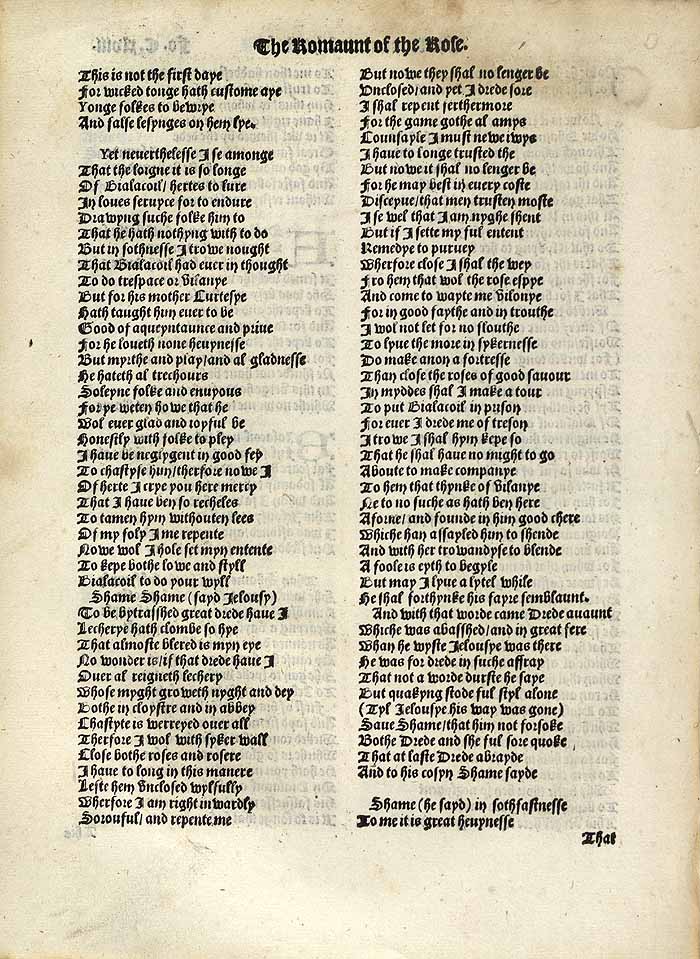 The Romaunt of the Rose.
This is not the first daye
For wicked tonge hath custome aye
Yonge folkes to bewrye
And false lesynges on hem lye.
Yet neuerthelesse I se amonge
That the loigne it is so longe
Of Bialacoil/ hertes to lure
In loues seruyce for to endure
Drawyng suche folke him to
That he hath nothyng with to do
But in sothnesse I trowe nought
That Bialacoil had euer in thought
To do trespace or vilanye
But for his mother Curtesye
Hath taught him euer to be
Good of aqueyntaunce and priue
For he loueth none heuynesse
But myrthe and play/and al gladnesse
He hateth al trechours
Soleyne folke and enuyous
For ye weten howe that he
Wol euer glad and ioyful be
Honestly with folke to pley
I haue be neglygent in good fey
To chastyse him/therfore nowe I
Of herte I crye you here mercy
That I haue ben so recheles
To tamen hym withouten lees
Of my foly I me repente
Nowe wol I hole set myn entente
To kepe bothe lowe and styll
Bialacoil to do your wyll
Shame Shame (sayd Jelousy)
To be bytrasshed great drede haue I
Lecherye hath clombe so hye
That almoste blered is myn eye
No wonder is/if that drede haue I
Ouer al reigneth lechery
Whose myght groweth nyght and dey
Bothe in cloystre and in abbey
Chastyte is werreyed ouer all
Therfore I wol with syker wall
Close bothe roses and rosere
I haue to long in this manere
Leste hem vnclosed wylfully
Wherfore I am right inwardly
Sorouful/ and repente me
But nowe they shal no lenger be
Vnclosed/ and yet I drede sore
I shal repent ferthermore
For the game gothe al amys
Counsayle I must newe iwys
I haue to longe trusted the
But nowe it shal no lenger be
For he may best in euery coste
Disceyue/ that men trusten moste
I se wel that I am nyghe shent
But if I sette my ful entent
Remedye to puruey
Wherfore close I shal the wey
Fro hem that wol the rose espye
And come to wayte me vilonye
For in good faythe and in trouthe
I wol not let for no slouthe
To lyue the more in sykernesse
Do make anon a fortresse
Than close the roses of good sauour
In myddes shal I make a tour
To put Bialacoil in prison
For euer I drede me of treson
I trowe I shal hym kepe so
That he shal haue no might to go
Aboute to make companye
To hem that thynke of vilanye
Ne to no suche as hath ben here
Aforne/ and founde in him good chere
Whiche han assayled him to shende
And with her trowandyse to blende
A foole is eyth to begyle
But may I lyue a lytel while
He shal forthynke his fayre semblaunt.
And with that worde came Drede auaunt
Whiche was abasshed/and in great fere
Whan he wyste Jelousye was there
He was for drede in suche affray
That not a worde durste he saye
But quakyng stode ful styl alone
(Tyl Jelousye his way was gone)
Saue Shame/that him not forsoke
Bothe Drede and she ful sore quoke
That at laste Drede abrayde
And to his cosyn Shame sayde
Shame (he sayd) in sothfastnesse
To me it is great heuynesse
That